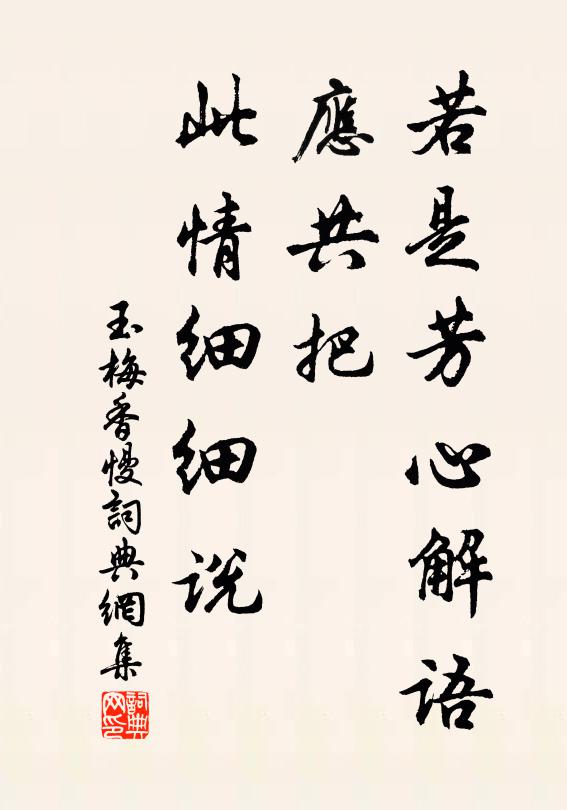 若是芳心解语
應共把
此情细细说
玉梅香慢詞典網集
詞典网印